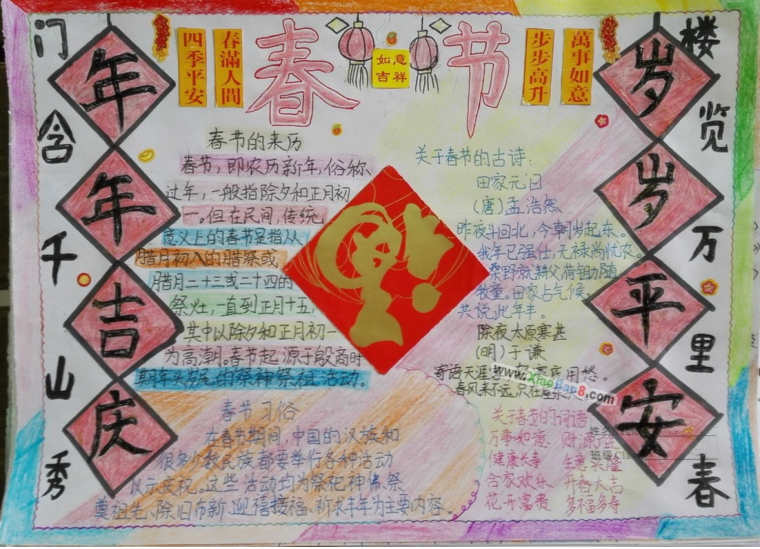 春节
四季平安
春滿人間
如意
吉祥
步步高升
萬事如意
门含千山秀
年年吉庆
岁岁平安
楼览万里春
春节的来历
春节,即农历新年,俗称
过年,一般指除夕和正月初
一。但在民间,传统
意义上的春节是指从
腊月初八的腊祭或
腊月二十三或二十四的
祭灶,一直到正月十五,
其中以除夕和正月初一
为高潮。春节起源于殷商时
期年头岁尾的祭神祭祖活动。
春节习俗
在春节期间,中国的汉族和
很多少数民族都要举行各种活动
以示庆祝。这些活动均为祭祀神佛、祭
奠祖先、除旧布新、迎禧接福、祈求丰年为主要内容。
关于春节的古诗:
田家元日
(唐)孟浩然
昨夜斗回北,今朝岁起东。
我年已强仕,无禄尚忧农。
桑野就耕父,荷锄随
牧童。田家占气候,
共说此年丰。
除夜太原寒甚
(明)于谦
寄语天涯
春风来不远,只在
www.Xiaobao8.com
关于春节的词语
万事如意
健康长寿 生意兴隆
合家欢乐 开春大吉
花开富贵 多福多寿